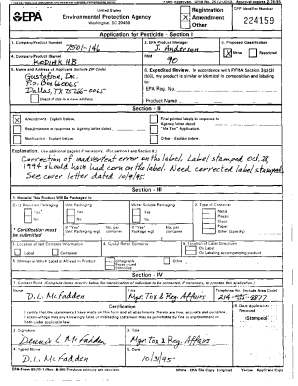 United States
EPA Environmental Protection Agency
Washington, DC 20460
Registration
Amendment
Other
224159
Application for Pesticide - Section I
1. Company/Product Number
7501-146
2. EPA Product Manager
J. Anderson
3. Proposed Classification
None Restricted
4. Company/Product (Name)
Kodiak HB
PM#
90
5. Name and Address of Applicant (Include ZIP Code)
Gustafson, Inc.
P.O. Box 660065
Dallas, TX 75266-0065
Check if this is a new address
6. Expedited Review. In accordance with FIFRA Section 3(c)(3)
(b)(i), my product is similar or identical in composition and labeling
to:
EPA Reg. No.
Product Name
Section - II
Amendment - Explain below.
Resubmission in response to Agency letter dated
Notification - Explain below.
Final printed labels in response to
Agency letter dated
"Me Too" Application.
Other - Explain below.
Explanation: Use additional page(s) if necessary. (For section I and Section II.)
Correction of inadvertent error on the label. Label stamped Oct. 28,
1994 should have had corn on the label. Need corrected label stamped.
See cover letter dated 10/4/95.
Section - III
1. Material This Product Will Be Packaged In:
Child-Resistant Packaging
Unit Packaging
Water Soluble Packaging
2. Type of Container
Yes
No
* Certification must
be submitted
Metal
Plastic
Glass
Paper
Other (Specify)
3. Location of Net Contents Information
Label Container
4. Size(s) Retail Container
5. Location of Label Directions
On Label
On Labeling accompanying product
6. Manner in Which Label is Affixed to Product
Lithograph
Paper glued
Stenciled
Other
Section - IV
1. Contact Point (Complete items directly below for identification of individual to be contacted, if necessary, to process this application.)
Name
D.L. McFadden
Title
Mgr. Tox & Reg. Affairs
Telephone No. (Include Area Code)
Certification
I certify that the statements I have made on this form and all attachments thereto are true, accurate and complete.
I acknowledge that any knowingly false or misleading statement may be punishable by fine or imprisonment or
both under applicable law.
6. Date Application
Received
(Stamped)
2. Signature
Dennis L McFadden
3. Title
Mgr. Tox & Reg. Affairs
4. Typed Name
D.L. McFadden
5. Date
10/3/95